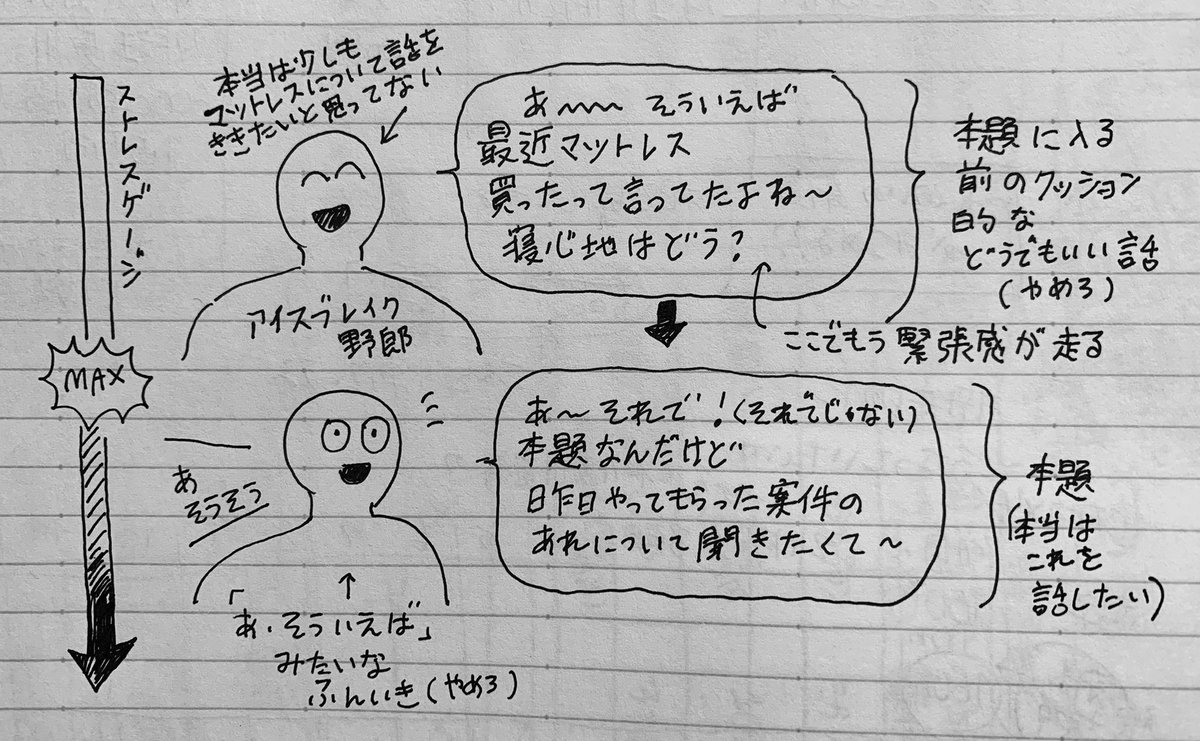 ストレスゲージ
MAX
本当は少しも
マットレスについて話を
ききたいと思ってない
アイスブレイク
野郎
あ〜〜 そういえば
最近マットレス
買ったって言ってたよね〜
寝心地はどう?
本題に入る
前のクッション
的な
どうでもいい話
(やめろ)
ここでもう緊張感が走る
あ
そうそう
「あ、そういえば」
みたいな
ふんいき(やめろ)
あ〜それで!(それでじゃない)
本題なんだけど
昨日やってもらった案件の
あれについて聞きたくて〜
本題
(本当は
これを
話したい)